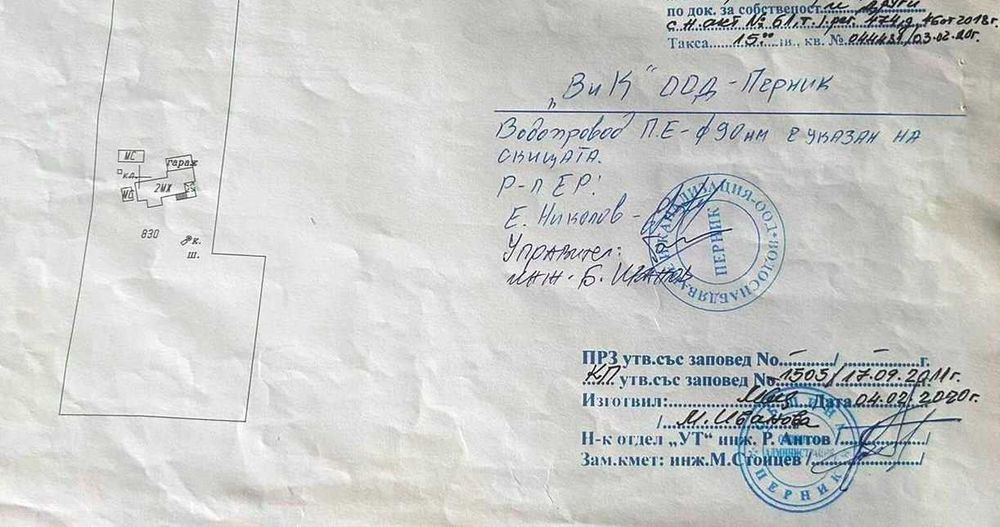 по док. за собственост и други
с н.акт № 61, т. I, рег. 174
Такса 15.00 лв., кв. № 044431/03.02.20г.
„ВиК“ ООД - Перник
Водопровод П.Е-ф90мм е указан на
скицата.
Р-л ЕР:
Е. Николов -
Управител:
инж. Б. Иванов
ВОДОСНАБДЯВАНЕ И КАНАЛИЗАЦИЯ-ООД
ПЕРНИК
МС
гараж
кл.
2МЖ
МС
830
к.
ш.
ПРЗ утв.със заповед No - / - г.
КП утв.със заповед No 1505/17.09.2011г.
Изготвил: Дата 04.02.2020г.
/ М. Иванова /
Н-к отдел „УТ“ инж. Р. Антов / /
Зам.кмет: инж.М.Стойцев / /
ОБЩИНА
АДМИНИСТРАЦИЯ
ПЕРНИК